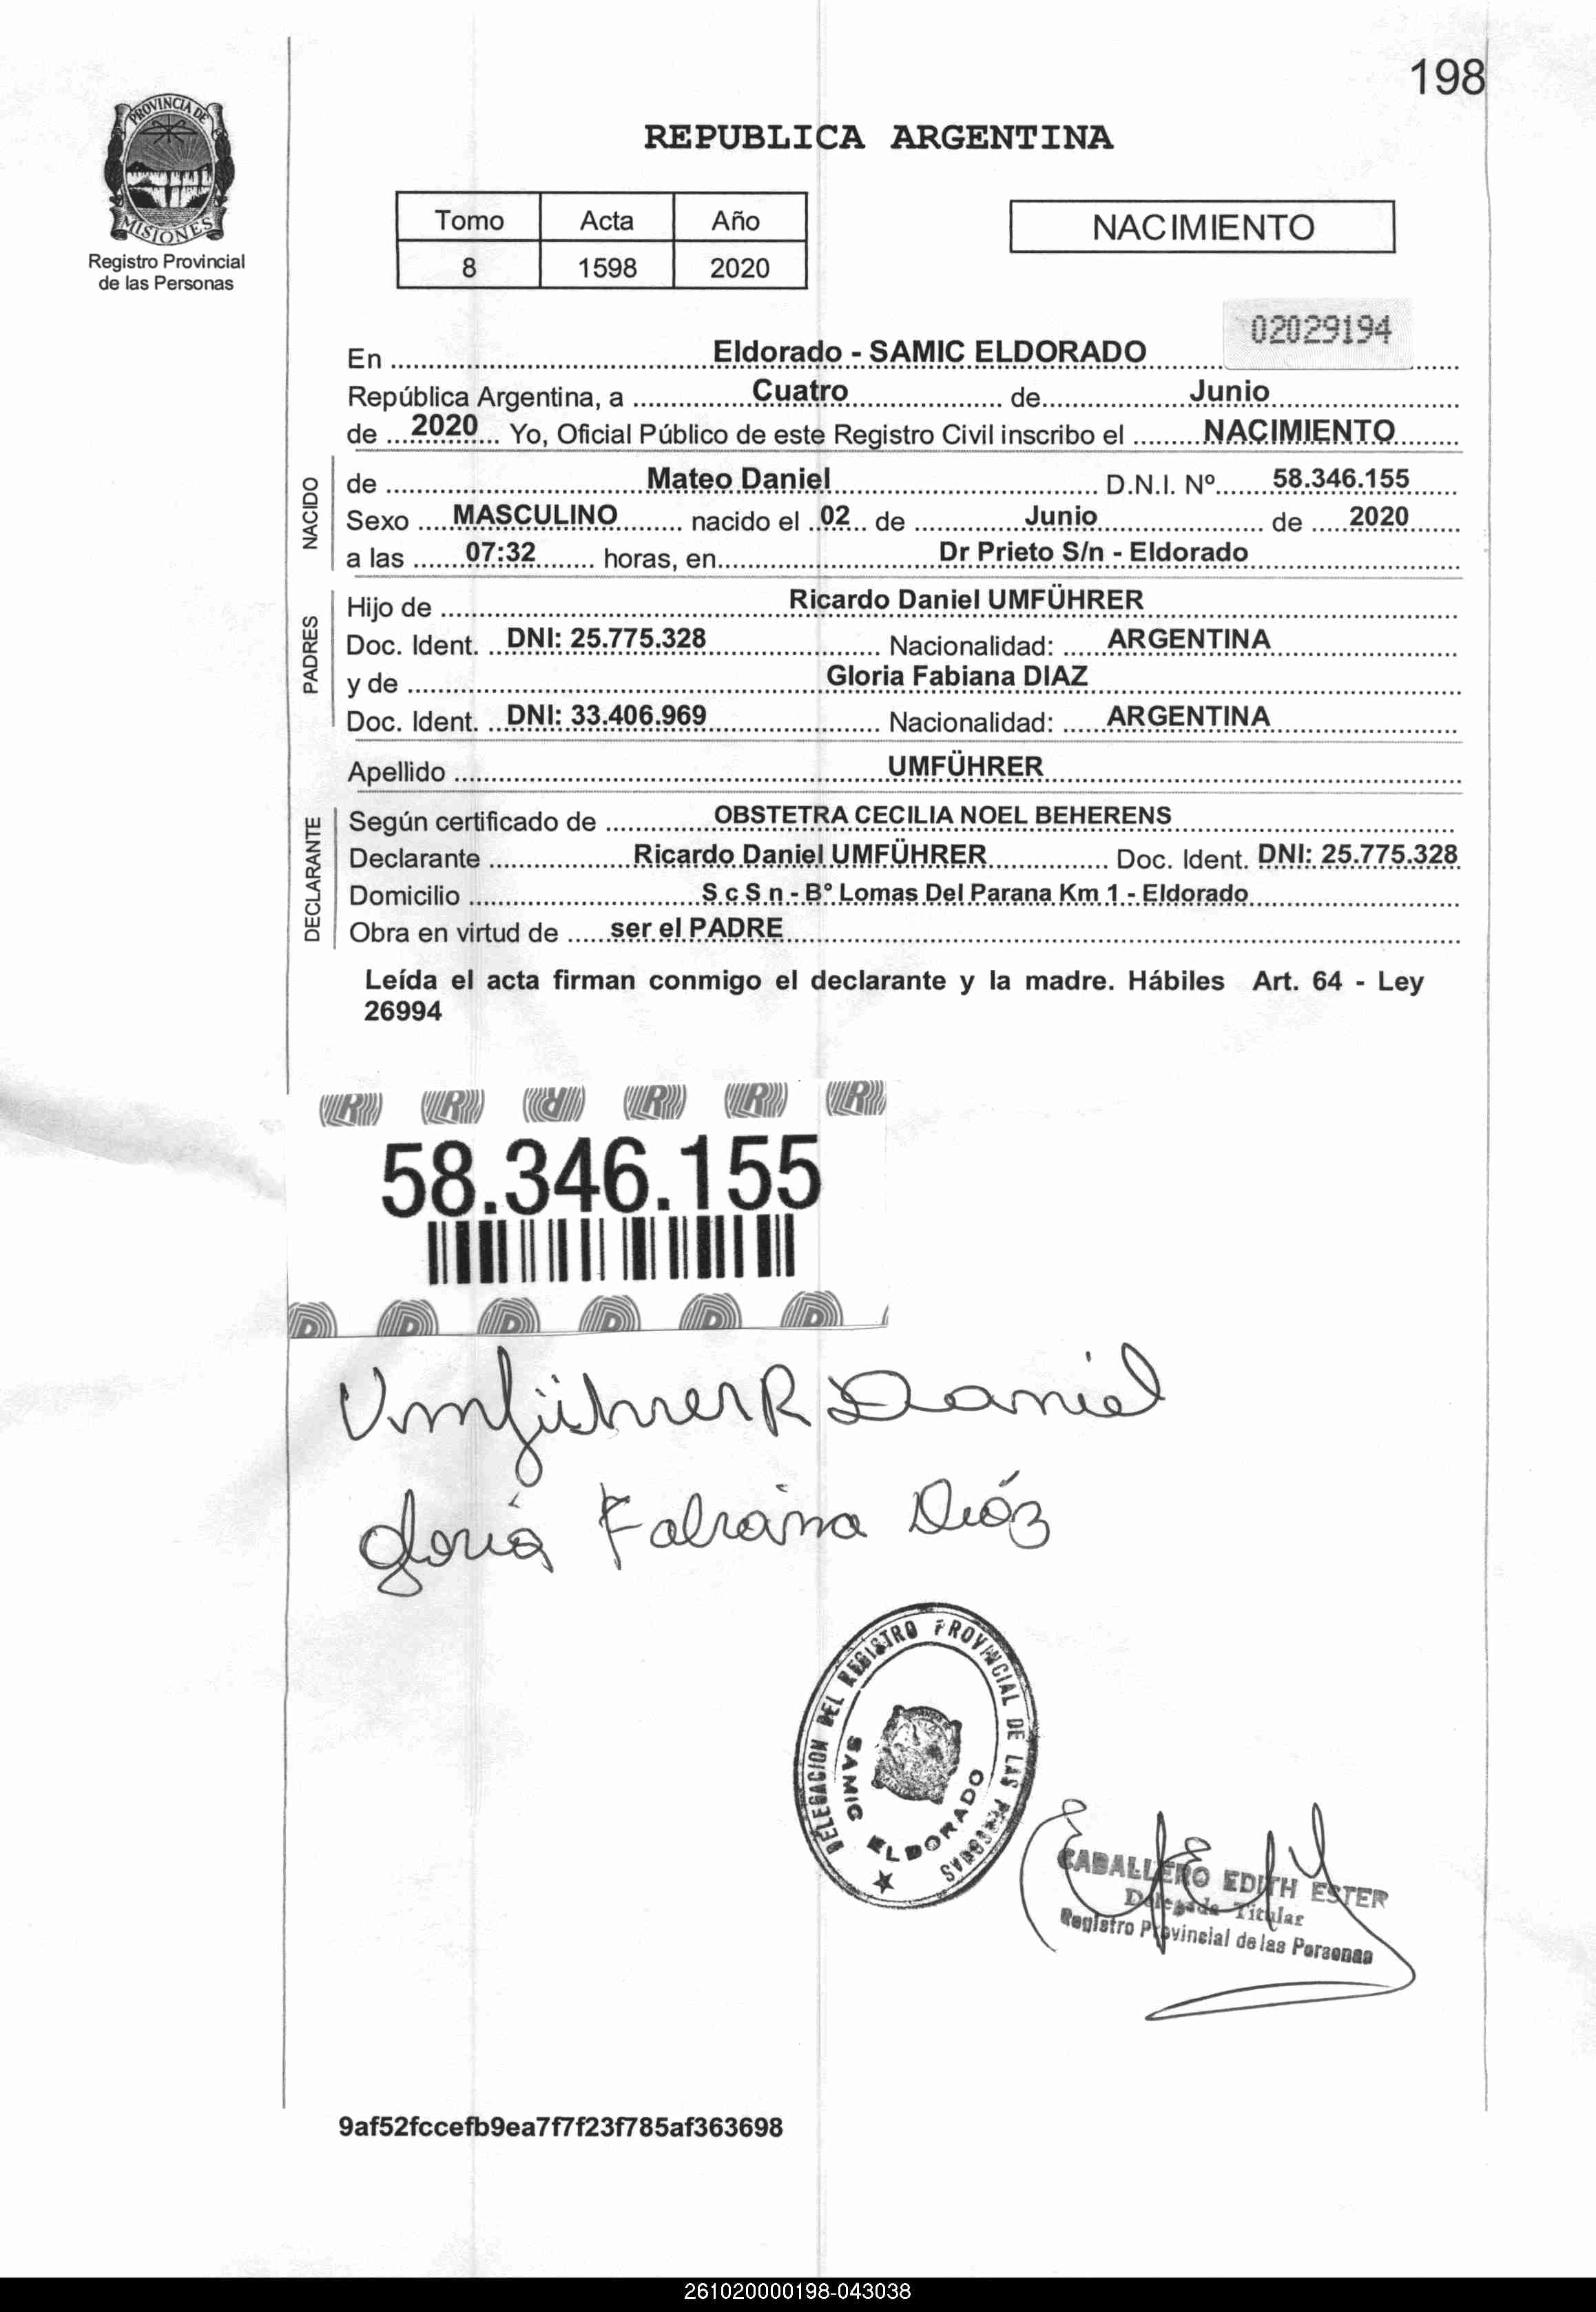 198
PROVINCIA DE
MISIONES
Registro Provincial
de las Personas
REPUBLICA ARGENTINA
Tomo Acta Año
8 1598 2020
NACIMIENTO
02029194
En Eldorado - SAMIC ELDORADO
República Argentina, a Cuatro de Junio
de 2020 Yo, Oficial Público de este Registro Civil inscribo el NACIMIENTO
NACIDO
de Mateo Daniel D.N.I. Nº 58.346.155
Sexo MASCULINO nacido el 02 de Junio de 2020
a las 07:32 horas, en Dr Prieto S/n - Eldorado
PADRES
Hijo de Ricardo Daniel UMFÜHRER
Doc. Ident. DNI: 25.775.328 Nacionalidad: ARGENTINA
y de Gloria Fabiana DIAZ
Doc. Ident. DNI: 33.406.969 Nacionalidad: ARGENTINA
Apellido UMFÜHRER
DECLARANTE
Según certificado de OBSTETRA CECILIA NOEL BEHERENS
Declarante Ricardo Daniel UMFÜHRER Doc. Ident. DNI: 25.775.328
Domicilio S c S n - B° Lomas Del Parana Km 1 - Eldorado
Obra en virtud de ser el PADRE
Leída el acta firman conmigo el declarante y la madre. Hábiles Art. 64 - Ley
26994
R R R R R R
58.346.155
D D D D D D
Umführer R Daniel
Gloria Fabiana Diáz
DELEGACION DEL REGISTRO PROVINCIAL DE LAS PERSONAS
SAMIC ELDORADO
CABALLERO EDITH ESTER
Delegada Titular
Registro Provincial de las Personas
9af52fccefb9ea7f7f23f785af363698
261020000198-043038